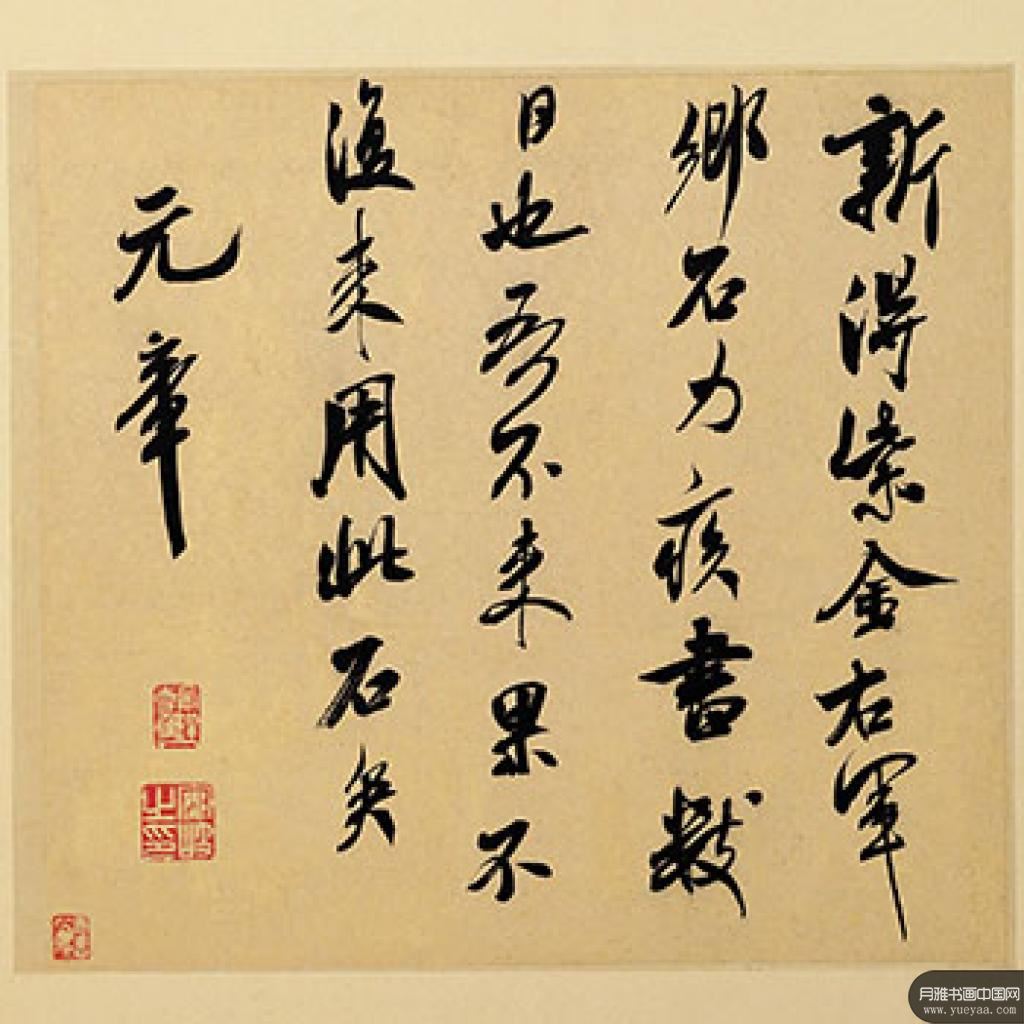 新得紫金右軍
鄉石力疾書數
日也吾不來果不
復來用此石矣
元章
月雅书画中国网
www.yueyaa.com